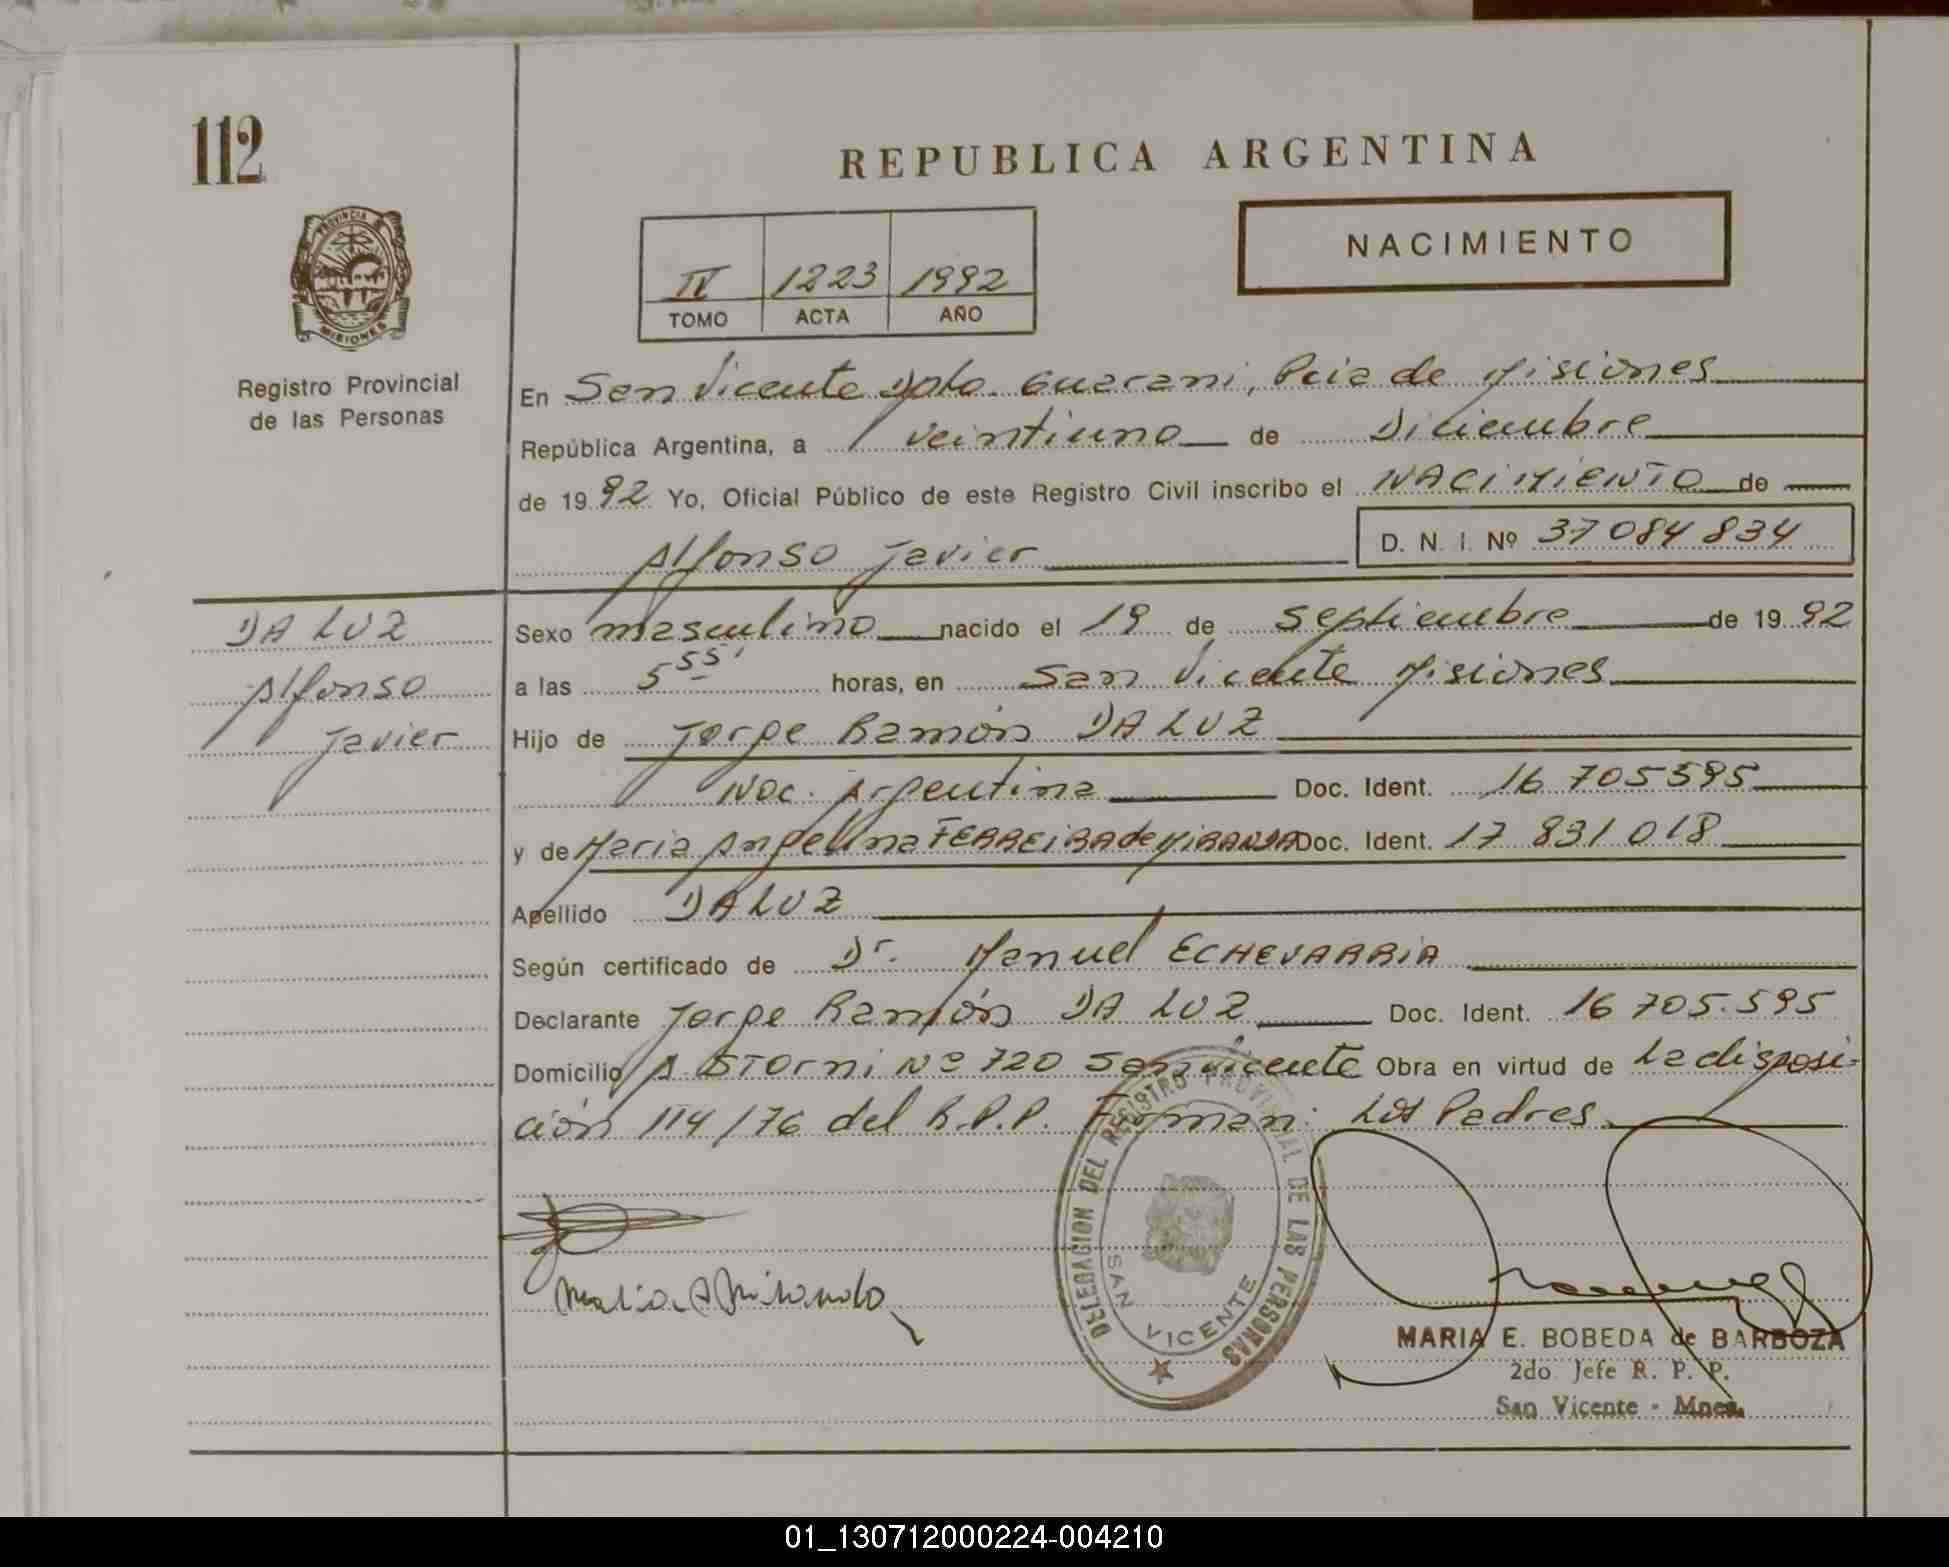 112
REPUBLICA ARGENTINA
NACIMIENTO
IV 1223 1992
TOMO ACTA AÑO
PROVINCIA DE
MISIONES
Registro Provincial
de las Personas
En San Vicente Dpto. Guarani, Pcia de Misiones
República Argentina, a veintiuno de Diciembre
de 1992 Yo, Oficial Público de este Registro Civil inscribo el NACIMIENTO de
Alfonso Javier D. N. I. Nº 37 084 834
DA LUZ
Alfonso
Javier
Sexo masculino nacido el 19 de septiembre de 1992
a las 5 55' horas, en San Vicente Misiones
Hijo de Jorge Ramón DA LUZ
Nac. Argentina Doc. Ident. 16 705595
y de Maria Angelina FERREIRA de MIRANDA Doc. Ident. 17 831 018
Apellido DA LUZ
Según certificado de Dr. Manuel ECHEVARRIA
Declarante Jorge Ramón DA LUZ Doc. Ident. 16 705.595
Domicilio A STorni Nº 720 San Vicente Obra en virtud de La disposi-
ción 114/76 del R.P.P. Firman: Los Padres
DELEGACION DEL REGISTRO PROVINCIAL DE LAS PERSONAS
SAN VICENTE
Maria A Miranda
MARIA E. BOBEDA de BARBOZA
2do. Jefe R. P. P.
San Vicente - Mnes.
01_130712000224-004210